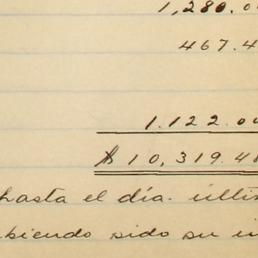 1,280.0
467.4
1.122.00
$10,319.48
hasta el día. últi
biendo sido su i